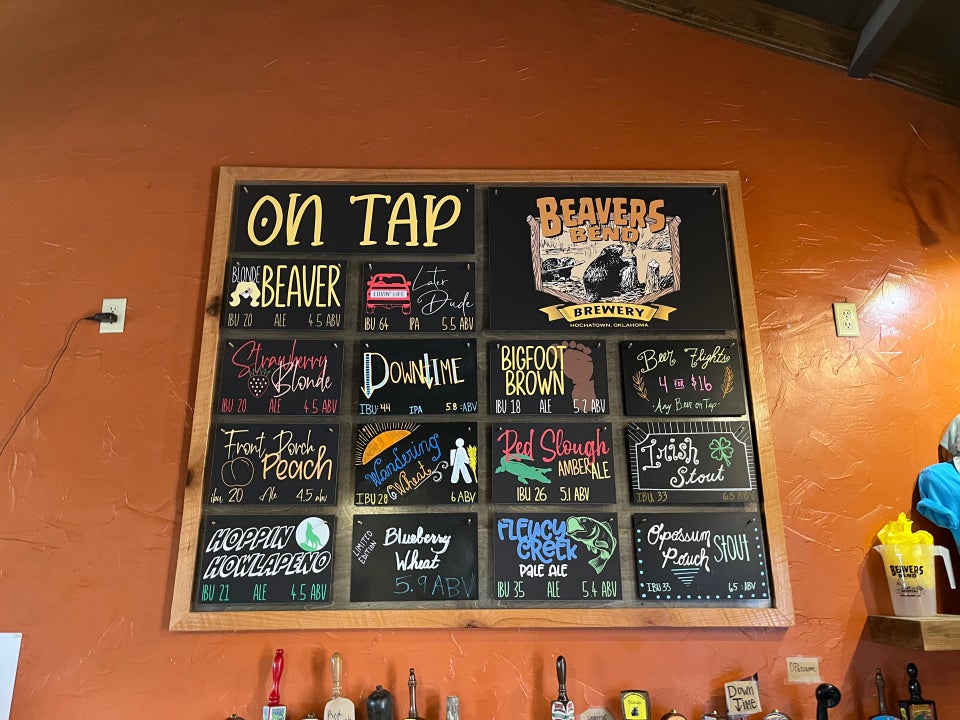 ON TAP
BEAVERS
BEND
BREWERY
HOCHATOWN, OKLAHOMA
BLONDE
BEAVER
IBU 20 ALE 4.5 ABV
LOVIN' LIFE
Later
Dude
IBU 64 IPA 5.5 ABV
Strawberry
Blonde
IBU 20 ALE 4.5 ABV
DOWNTIME
IBU: 44 IPA 5.8 :ABV
BIGFOOT
BROWN
IBU 18 ALE 5.2 ABV
Beer Flights
4 FOR $16
Any Beer on Tap
Front Porch
Peach
ibu 20 Ale 4.5 abv
Wandering
Wheat
IBU 28 6 ABV
Red Slough
AMBER ALE
IBU 26 5.1 ABV
Irish
Stout
IBU 33 6.5 ABV
HOPPIN
HOWLAPENO
IBU 21 ALE 4.5 ABV
LIMITED
EDITION
Blueberry
Wheat
5.9 ABV
FLEUCY
CREEK
PALE ALE
IBU 35 ALE 5.4 ABV
Opossum
Pouch
STOUT
IBU 33 6.5 :ABV
BEAVERS
BEND
Opossum
Down
Time
Red
Blonde